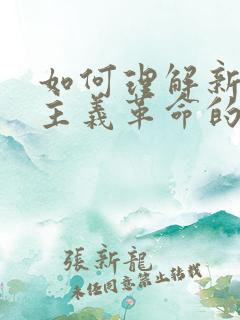 如何理解新
主義革命的
張新龍
未経同意禁止轉載